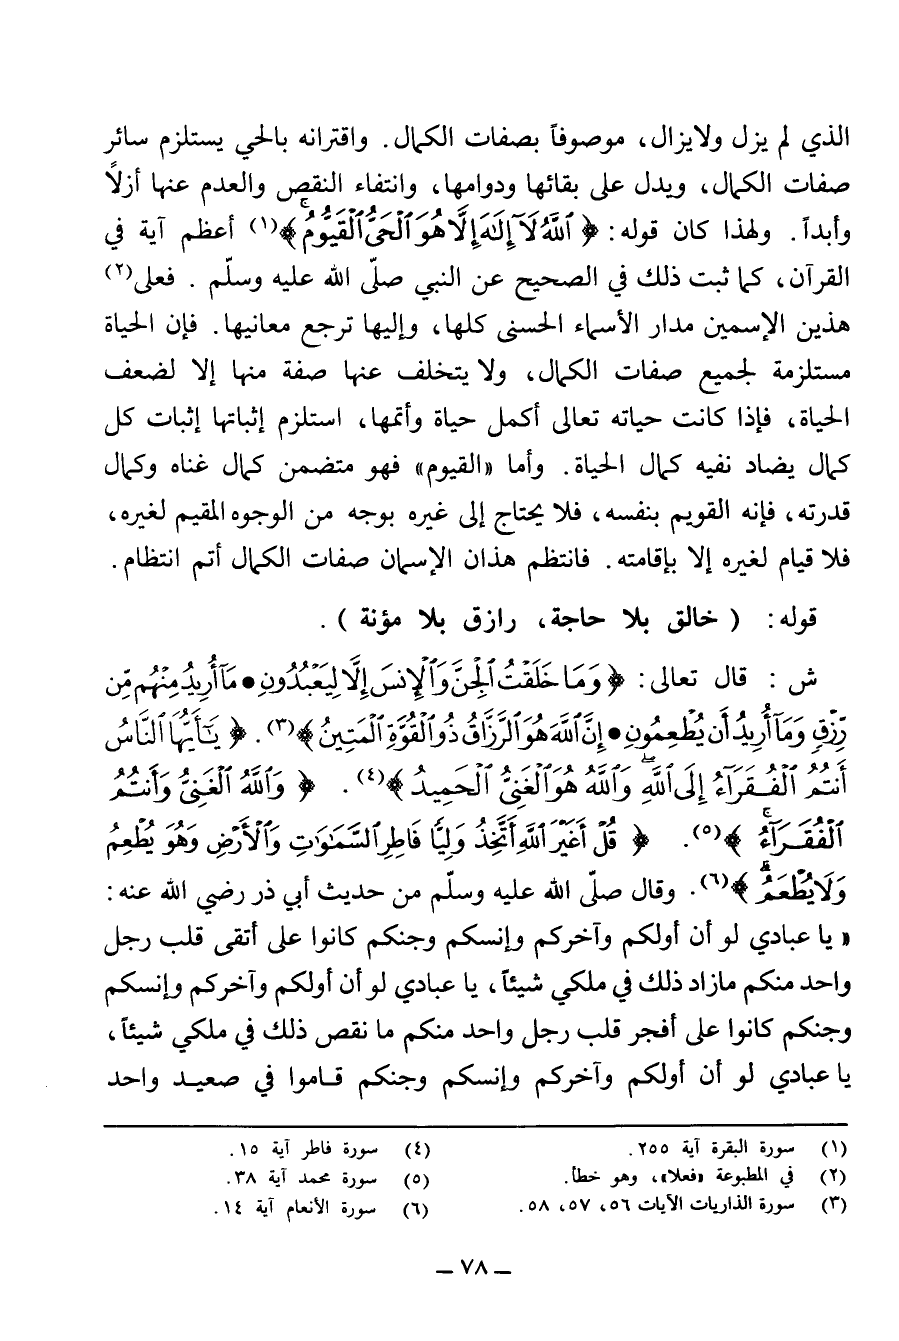 الذي لم يزل ولايزال، موصوفاً بصفات الكمال. واقترانه بالحي يستلزم سائر
صفات الكمال، ويدل على بقائها ودوامها، وانتفاء النقص والعدم عنها أزلاً
وأبداً. ولهذا كان قوله: ﴿ ٱللَّهُ لَآ إِلَٰهَ إِلَّا هُوَ ٱلْحَىُّ ٱلْقَيُّومُ ۚ ﴾(١) أعظم آية في
القرآن، كما ثبت ذلك في الصحيح عن النبي صلّى الله عليه وسلّم . فعلى(٢)
هذين الإسمين مدار الأسماء الحسنى كلها، وإليها ترجع معانيها. فإن الحياة
مستلزمة لجميع صفات الكمال، ولا يتخلف عنها صفة منها إلا لضعف
الحياة، فإذا كانت حياته تعالى أكمل حياة وأتمها، استلزم إثباتها إثبات كل
كمال يضاد نفيه كمال الحياة. وأما «القيوم» فهو متضمن كمال غناه وكمال
قدرته، فإنه القويم بنفسه، فلا يحتاج إلى غيره بوجه من الوجوه المقيم لغيره،
فلا قيام لغيره إلا بإقامته. فانتظم هذان الإسمان صفات الكمال أتم انتظام.
قوله: ( خالق بلا حاجة، رازق بلا مؤنة ) .
ش : قال تعالى: ﴿ وَمَا خَلَقْتُ ٱلْجِنَّ وَٱلْإِنسَ إِلَّا لِيَعْبُدُونِ • مَآ أُرِيدُ مِنْهُم مِّن
رِّزْقٍ وَمَآ أُرِيدُ أَن يُطْعِمُونِ • إِنَّ ٱللَّهَ هُوَ ٱلرَّزَّاقُ ذُو ٱلْقُوَّةِ ٱلْمَتِينُ ﴾(٣). ﴿ يَٰٓأَيُّهَا ٱلنَّاسُ
أَنتُمُ ٱلْفُقَرَآءُ إِلَى ٱللَّهِ ۖ وَٱللَّهُ هُوَ ٱلْغَنِىُّ ٱلْحَمِيدُ ﴾(٤). ﴿ وَٱللَّهُ ٱلْغَنِىُّ وَأَنتُمُ
ٱلْفُقَرَآءُ ۚ ﴾(٥). ﴿ قُلْ أَغَيْرَ ٱللَّهِ أَتَّخِذُ وَلِيًّا فَاطِرِ ٱلسَّمَٰوَٰتِ وَٱلْأَرْضِ وَهُوَ يُطْعِمُ
وَلَا يُطْعَمُ ۗ ﴾(٦). وقال صلّى الله عليه وسلّم من حديث أبي ذر رضي الله عنه:
« يا عبادي لو أن أولكم وآخركم وإنسكم وجنكم كانوا على أتقى قلب رجل
واحد منكم مازاد ذلك في ملكي شيئاً، يا عبادي لو أن أولكم وآخركم وإنسكم
وجنكم كانوا على أفجر قلب رجل واحد منكم ما نقص ذلك في ملكي شيئاً،
يا عبادي لو أن أولكم وآخركم وإنسكم وجنكم قـاموا في صعيـد واحد
(١) سورة البقرة آية ٢٥٥.
(٢) في المطبوعة «فعلا»، وهو خطأ.
(٣) سورة الذاريات الآيات ٥٦، ٥٧، ٥٨.
(٤) سورة فاطر آية ١٥.
(٥) سورة محمد آية ٣٨.
(٦) سورة الأنعام آية ١٤.
ـ ٧٨ ـ